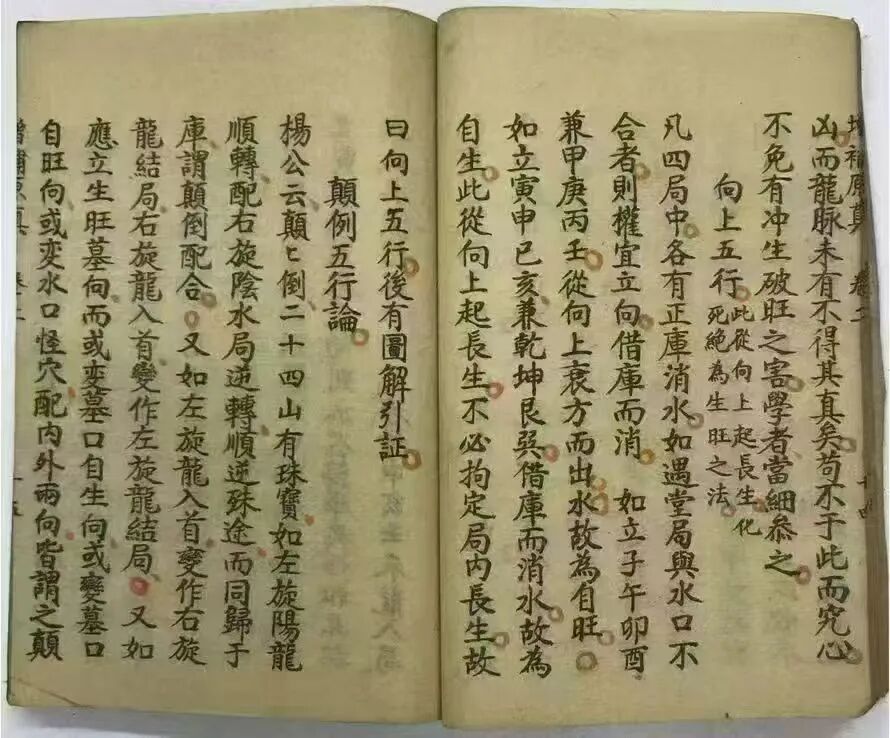 補原真 卷二 十四
凶而龍脉未有不得其真矣苟不于此而究心
不免有冲生破旺之害學者當細叅之
向上五行 此從向上起長生化
死絶為生旺之法
凢四局中各有正庫消水如遇堂局與水口不
合者則權宜立向借庫而消 如立子午卯酉
兼甲庚丙壬從向上衰方而出水故為自旺
如立寅申巳亥兼乾坤艮巽借庫而消水故為
自生此從向上起長生不必拘定局内長生故
曰向上五行後有圖解引証
顛例五行論
楊公云顛〻倒二十四山有珠寶如左旋陽龍
順轉配右旋陰水局逆轉順逆殊途而同歸于
庫謂顛倒配合又如左旋龍入首變作右旋
龍結局右旋龍入首變作左旋龍結局又如
應立生旺墓向而或变墓口自生向或變墓口
自旺向或变水口怪穴配内外兩向皆謂之顛